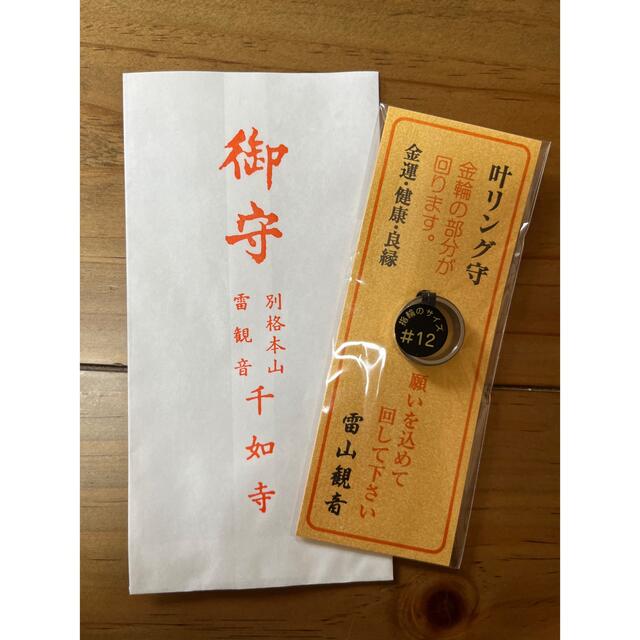 御守
別格本山
雷観音
千如寺
叶リング守
金輪の部分が
回ります。
金運・健康・良縁
指輪のサイズ
#12
願いを込めて
回して下さい
雷山観音